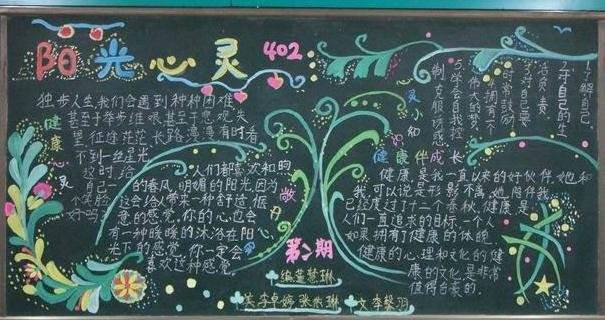 阳光心灵
402
独步人生,我们会遇到种种困难
甚至于举步维艰,甚至于悲观失
望,征途茫茫,长路漫漫,有时看
不到一丝星光
这时,给
自己一
个笑脸
好吗?
健康心灵
人们都喜欢和煦
的春风,明媚的阳光,因为
这会给人带来一种舒适惬
意的感觉,你的心也会
有一种暖暖的沐浴在阳
光下的感觉,你一定会
喜欢这种感觉
敞开心
第 期
编
美 李卓婷
文 李
心灵小
了解自己
对自己的生
活负责
对自己要
时常鼓励
拥有一个
学会自我控
制克服
健康伴成长
健康是我一直以来的好伙伴,她和
我可以说是形影不离,她陪伴我
已经度过了十二个春秋,健康是
人们一直追求的目标,一个人
如果拥有了健康的体魄
健康的心理和文化的健
康的文化是非常
值得自豪的